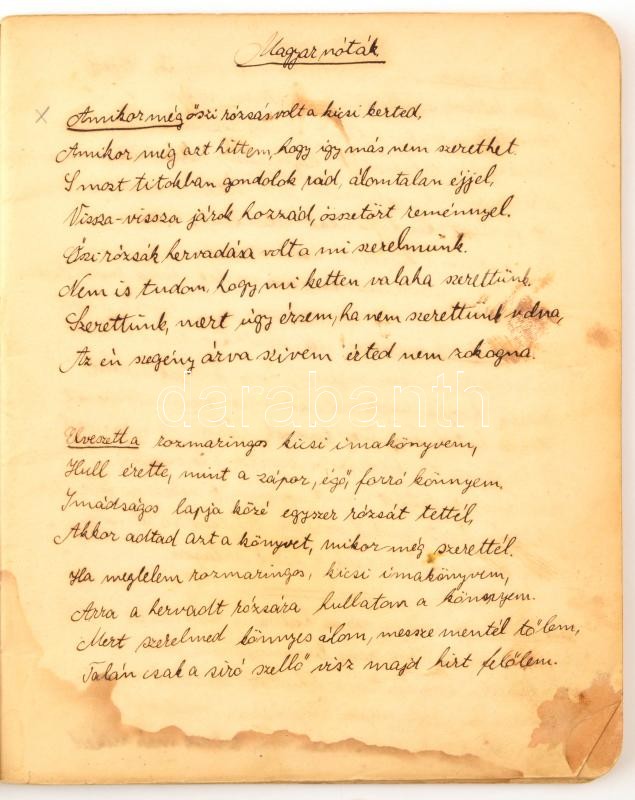 Magyar nóták
x Amikor még őszi rózsás volt a kicsi kerted,
Amikor még azt hittem, hogy így más nem szerethet.
S most titokban gondolok rád, álomtalan éjjel,
Vissza-vissza járok hozzád, összetört reménnyel.
Őszi rózsák hervadása volt a mi szerelmünk.
Nem is tudom, hogy mi ketten valaha szerettünk.
Szerettünk, mert úgy érzem, ha nem szerettünk volna,
Az én szegény árva szivem érted nem zokogna.
darabanth
Elveszett a rozmaringos kicsi imakönyvem,
Hull érette, mint a zápor, égő, forró könnyem.
Imádságos lapja közé egyszer rózsát tettél,
Akkor adtad azt a könyvet, mikor még szerettél.
Ha meglelem rozmaringos, kicsi imakönyvem,
Arra a hervadt rózsára hullatom a könnyem.
Mert szerelmed könnyes álom, messze mentél tőlem,
Talán csak a síró szellő visz majd hirt felőlem.